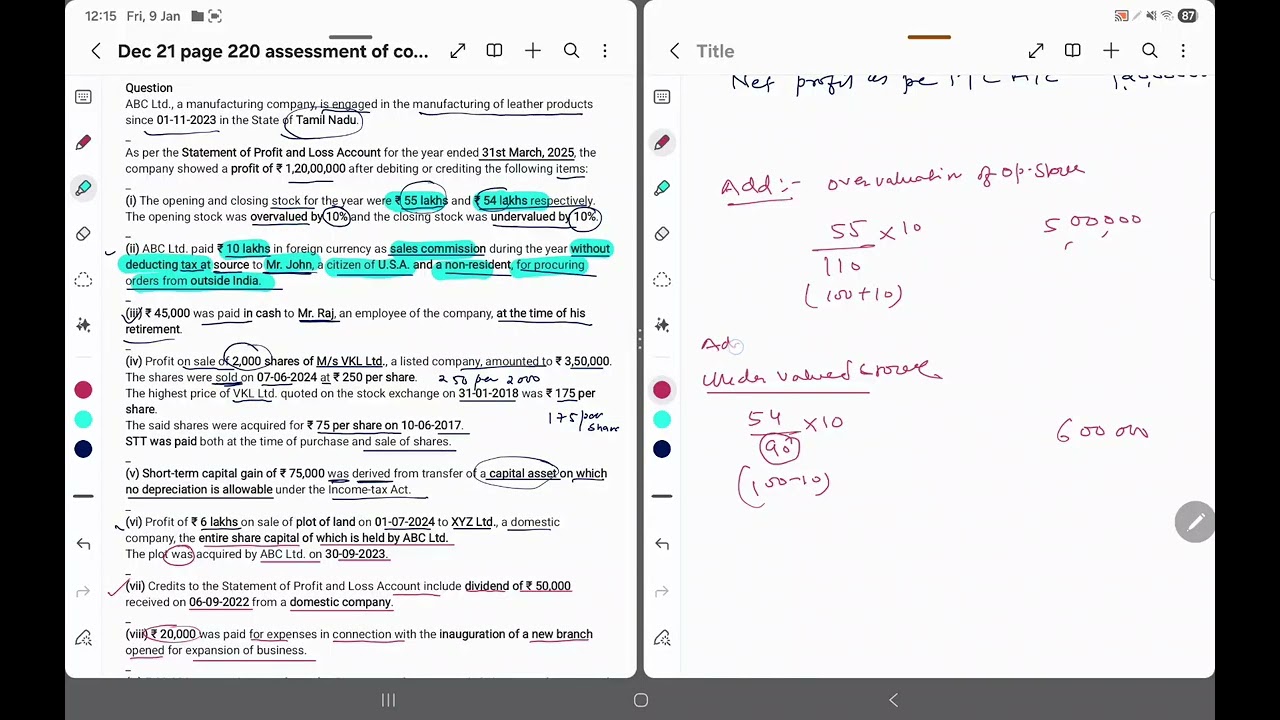 12:15 Fri, 9 Jan
87
Dec 21 page 220 assessment of co...
Title
Question
ABC Ltd., a manufacturing company, is engaged in the manufacturing of leather products
since 01-11-2023 in the State of Tamil Nadu.
As per the Statement of Profit and Loss Account for the year ended 31st March, 2025, the
company showed a profit of ₹ 1,20,00,000 after debiting or crediting the following items:
(i) The opening and closing stock for the year were ₹ 55 lakhs and ₹ 54 lakhs respectively.
The opening stock was overvalued by 10% and the closing stock was undervalued by 10%.
(ii) ABC Ltd. paid ₹ 10 lakhs in foreign currency as sales commission during the year without
deducting tax at source to Mr. John, a citizen of U.S.A. and a non-resident, for procuring
orders from outside India.
(iii) ₹ 45,000 was paid in cash to Mr. Raj, an employee of the company, at the time of his
retirement.
(iv) Profit on sale of 2,000 shares of M/s VKL Ltd., a listed company, amounted to ₹ 3,50,000.
The shares were sold on 07-06-2024 at ₹ 250 per share. 250 per 2000
The highest price of VKL Ltd. quoted on the stock exchange on 31-01-2018 was ₹ 175 per
share.
175/per share
The said shares were acquired for ₹ 75 per share on 10-06-2017.
STT was paid both at the time of purchase and sale of shares.
(v) Short-term capital gain of ₹ 75,000 was derived from transfer of a capital asset on which
no depreciation is allowable under the Income-tax Act.
(vi) Profit of ₹ 6 lakhs on sale of plot of land on 01-07-2024 to XYZ Ltd., a domestic
company, the entire share capital of which is held by ABC Ltd.
The plot was acquired by ABC Ltd. on 30-09-2023.
(vii) Credits to the Statement of Profit and Loss Account include dividend of ₹ 50,000
received on 06-09-2022 from a domestic company.
(viii) ₹ 20,000 was paid for expenses in connection with the inauguration of a new branch
opened for expansion of business.
Net profit as pe P/L A/C
Add :- Overvaluation of Op-Stock
55 × 10 5,00,000
110
(100+10)
Ad
Under valued
54 × 10 600 000
90
(100-10)